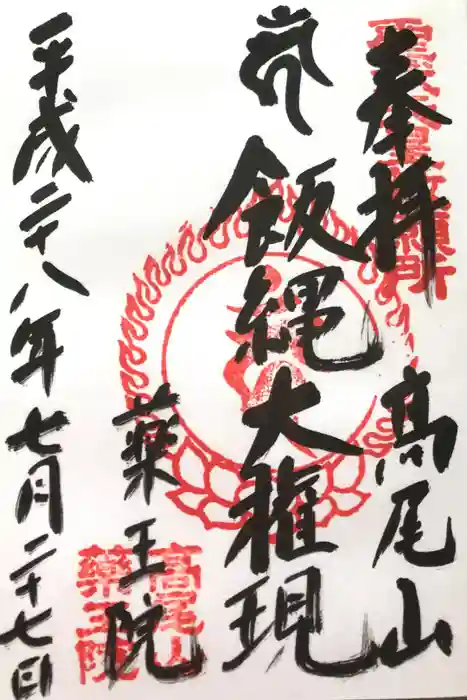 奉拝
高尾山
飯縄大権現
薬王院
平成二十八年七月二十七日
高尾山
薬王院